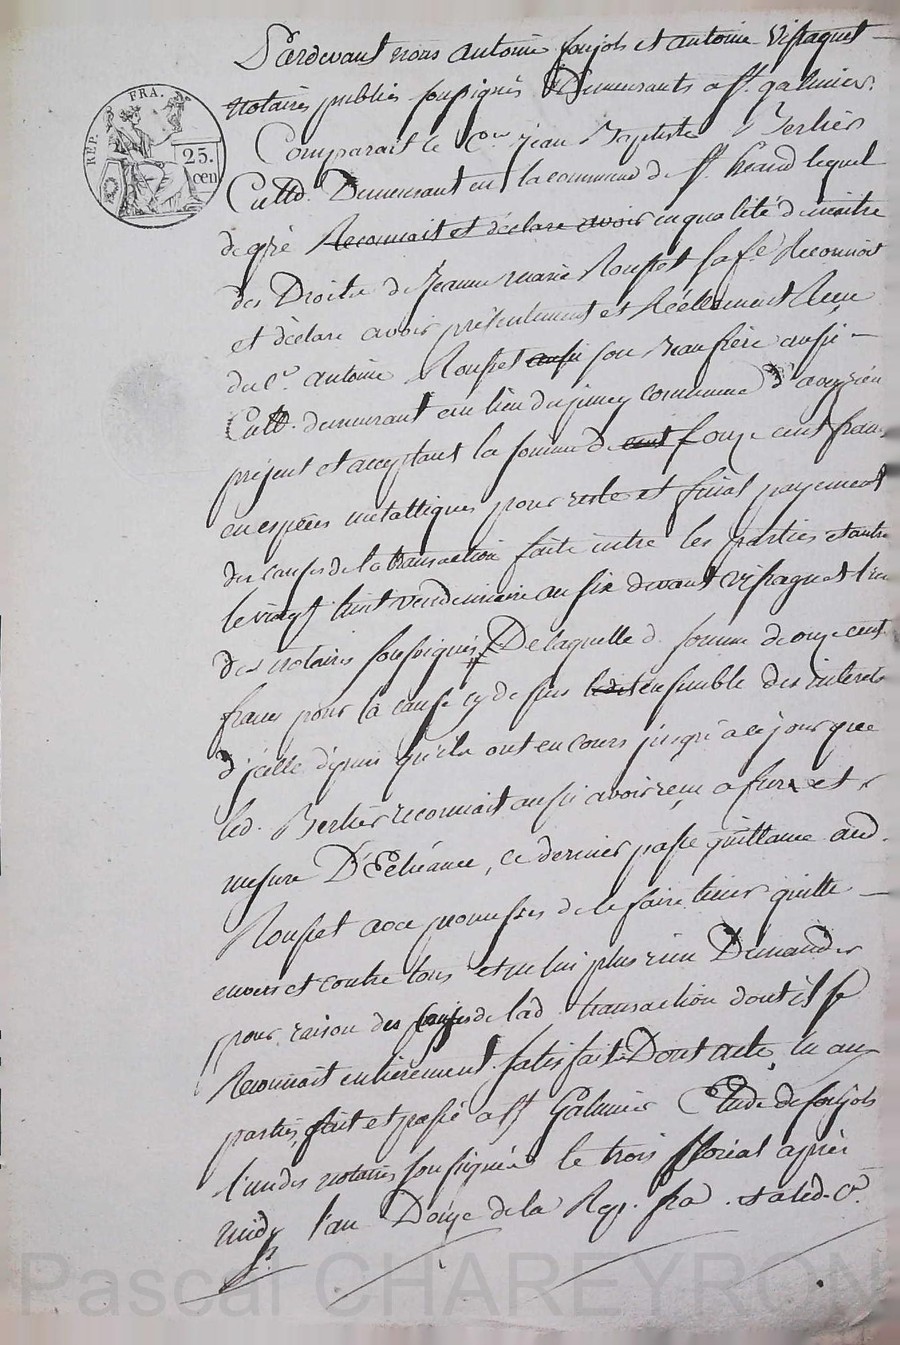 Pardevant nous antoine foujols et antoine Vissaguet
notaires publics soussignés Demeurants a St. galmier.
REP. FRA.
25. cen
Comparait le Cen. jean Baptiste Berlier
Cultr. Demeurant en la commune de St. heand lequel
de gré Reconnait et déclare avoir en qualité de maitre
des Droits de Jeanne marie Rousset sa fe. Reconnoit
et déclare avoir présentement et Réellement Reçu
du Cn. antoine Rousset aussi son Beaufrère aussi
Cultr. demeurant au lieu du jimey commune d'aveyzieu
présent et acceptant la somme de cent onze cent francs
en espèces métalliques pour reste et final payement
des causes de la transaction faite entre les parties et autre
le vingt huit vendemiaire an six devant Vissaguet l'un
des notaires soussignés De laquelle d. somme de onze cent
francs pour la cause cy dessus ledit ensemble des intérets
d'icelle depuis qu'ils ont en cours jusqu'a ce jour que
led. Berlier reconnait aussi avoir reçu a fur et
mesure D'Echéance, ce dernier passe quittance aud.
Rousset avec promesses de le faire tenir quitte
envers et contre tous et ne lui plus rien Demander
pour raison des causes de lad. transaction dont il se
Reconnait entièrement satisfait Dont acte, lu aux
parties, fait et passé a St Galmier Etude de foujols
l'un des notaires soussignés le trois floréal après
midy l'an Douze de la Rep. fra.
Pascal CHAREYRON